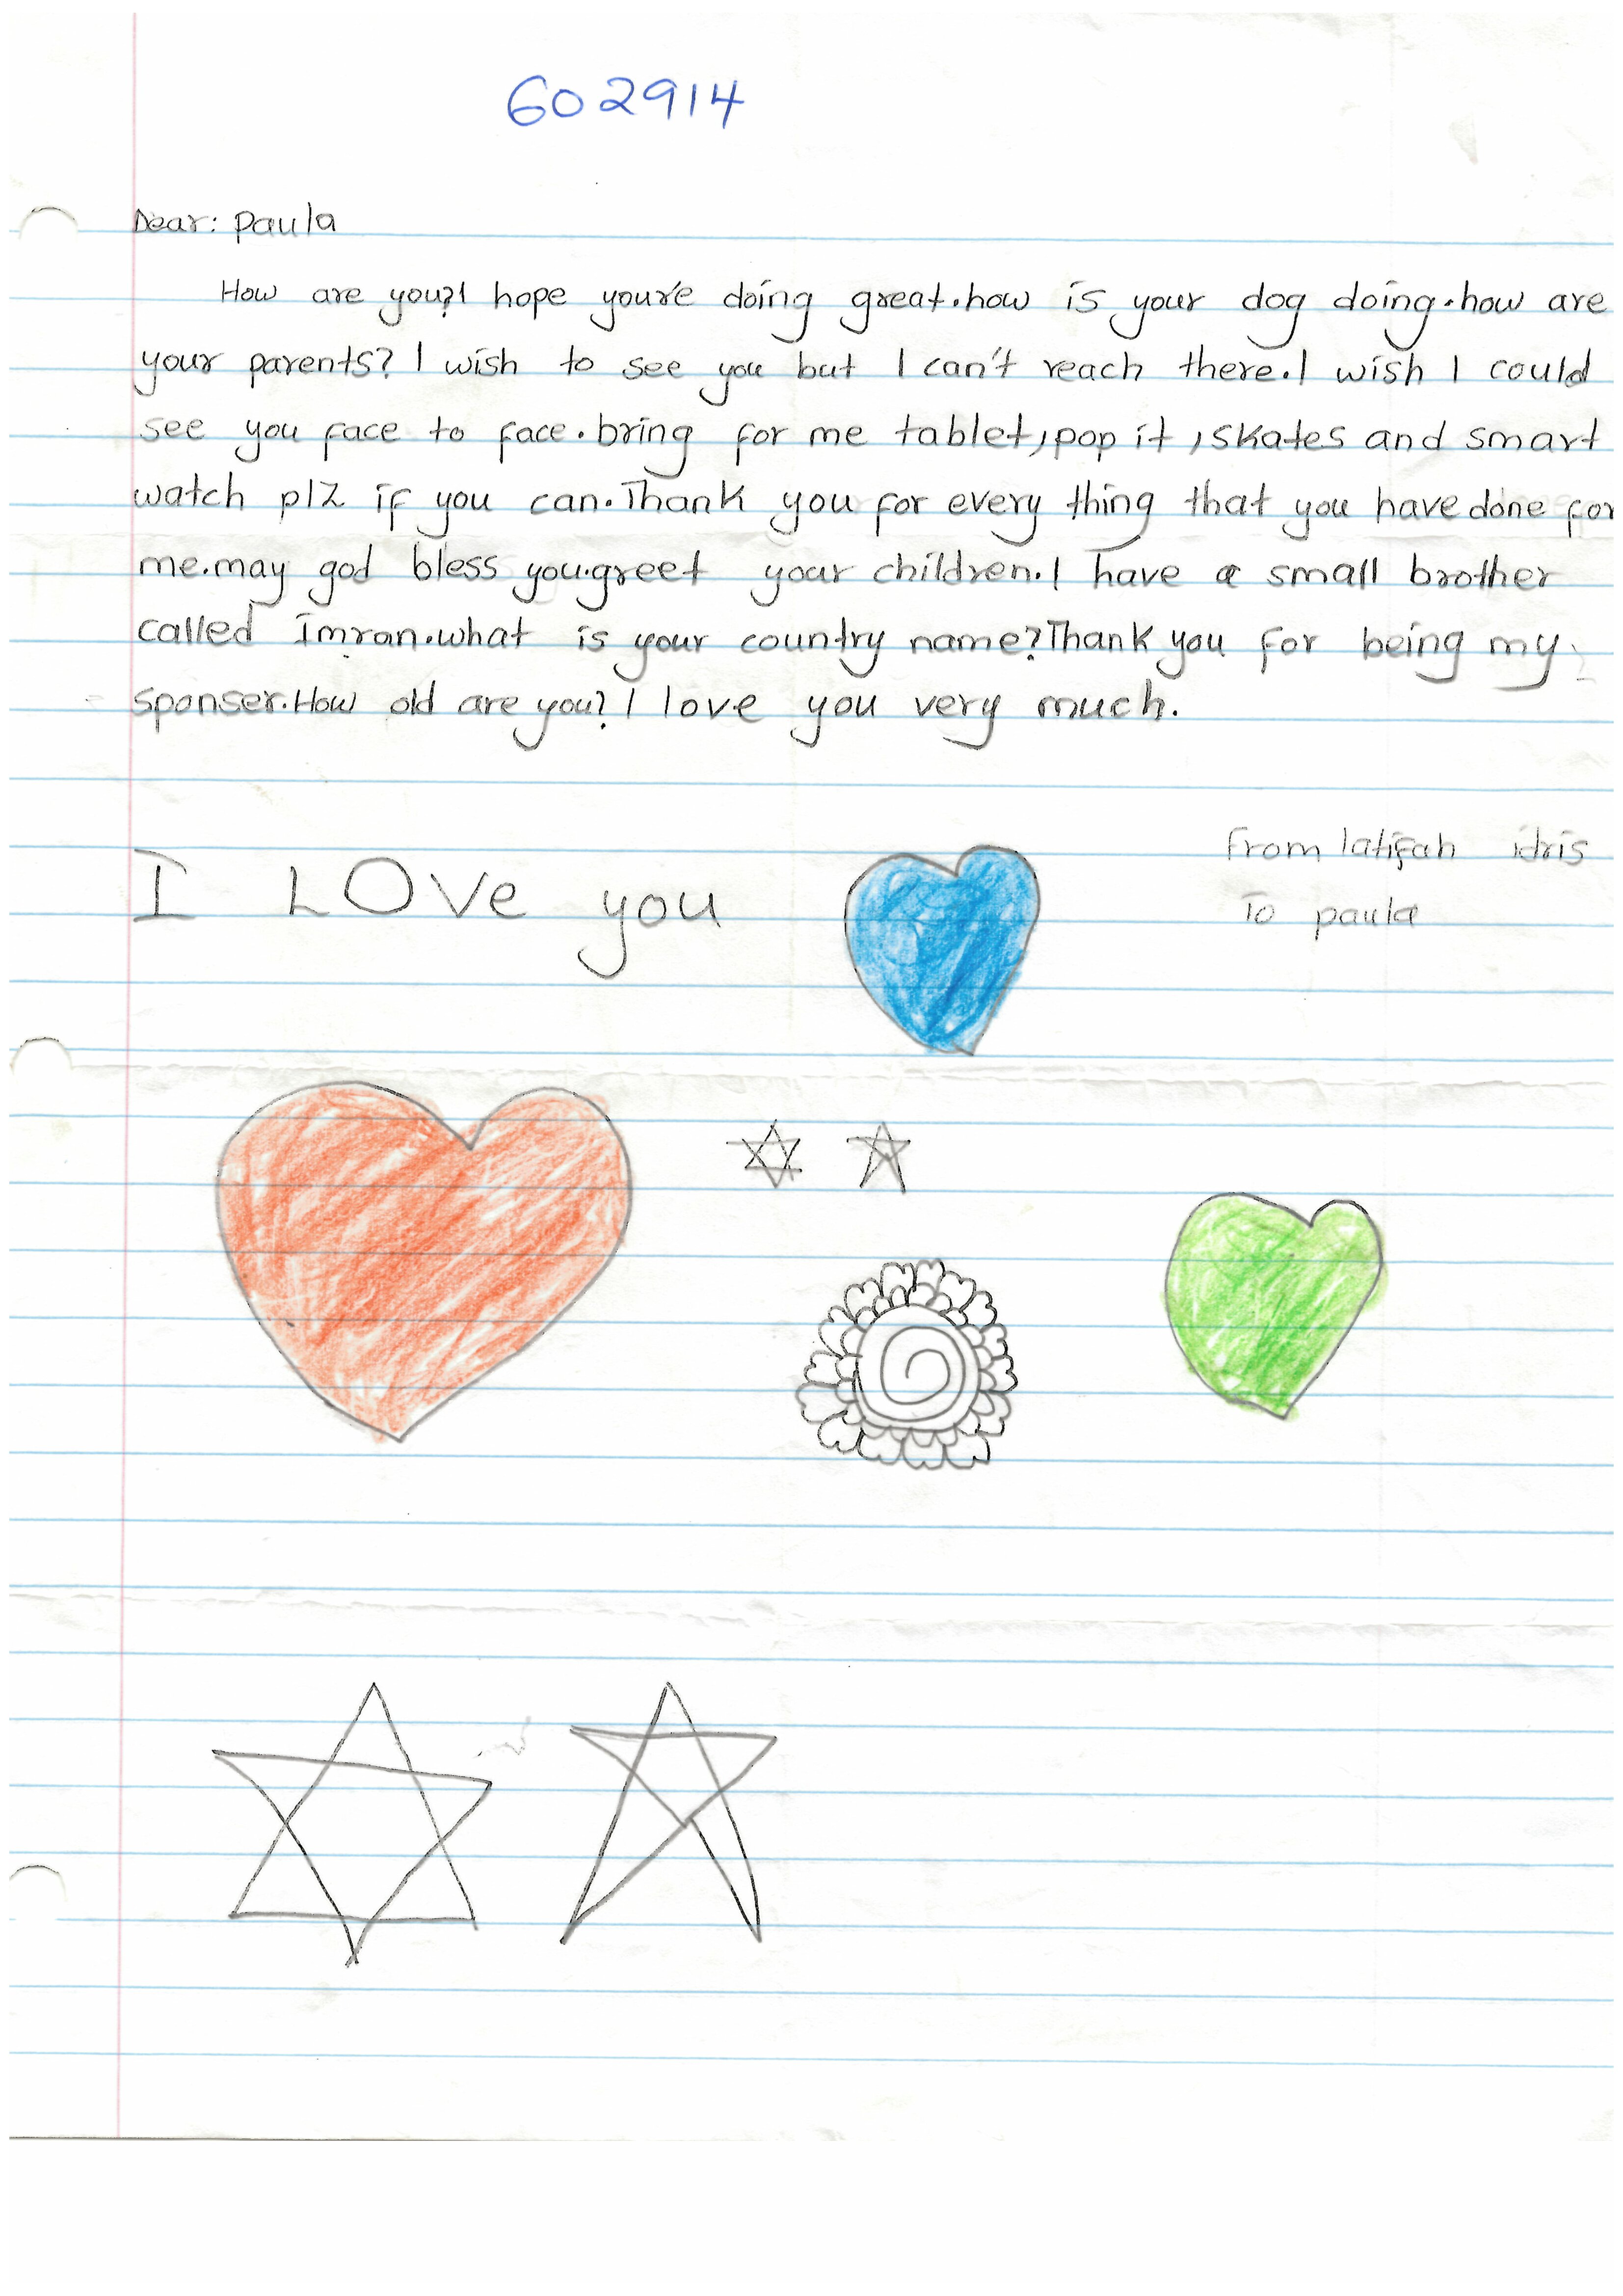 602914
Dear: paula
How are you?I hope you're doing great.how is your dog doing.how are
your parents? I wish to see you but I can't reach there.I wish I could
see you face to face.bring for me tablet,pop it,skates and smart
watch plz if you can.Thank you for every thing that you have done for
me.may god bless you.greet your children.I have a small brother
called Imran.what is your country name?Thank you for being my
sponser.How old are you? I love you very much.
I LOVe you
from latifah idris
To paula